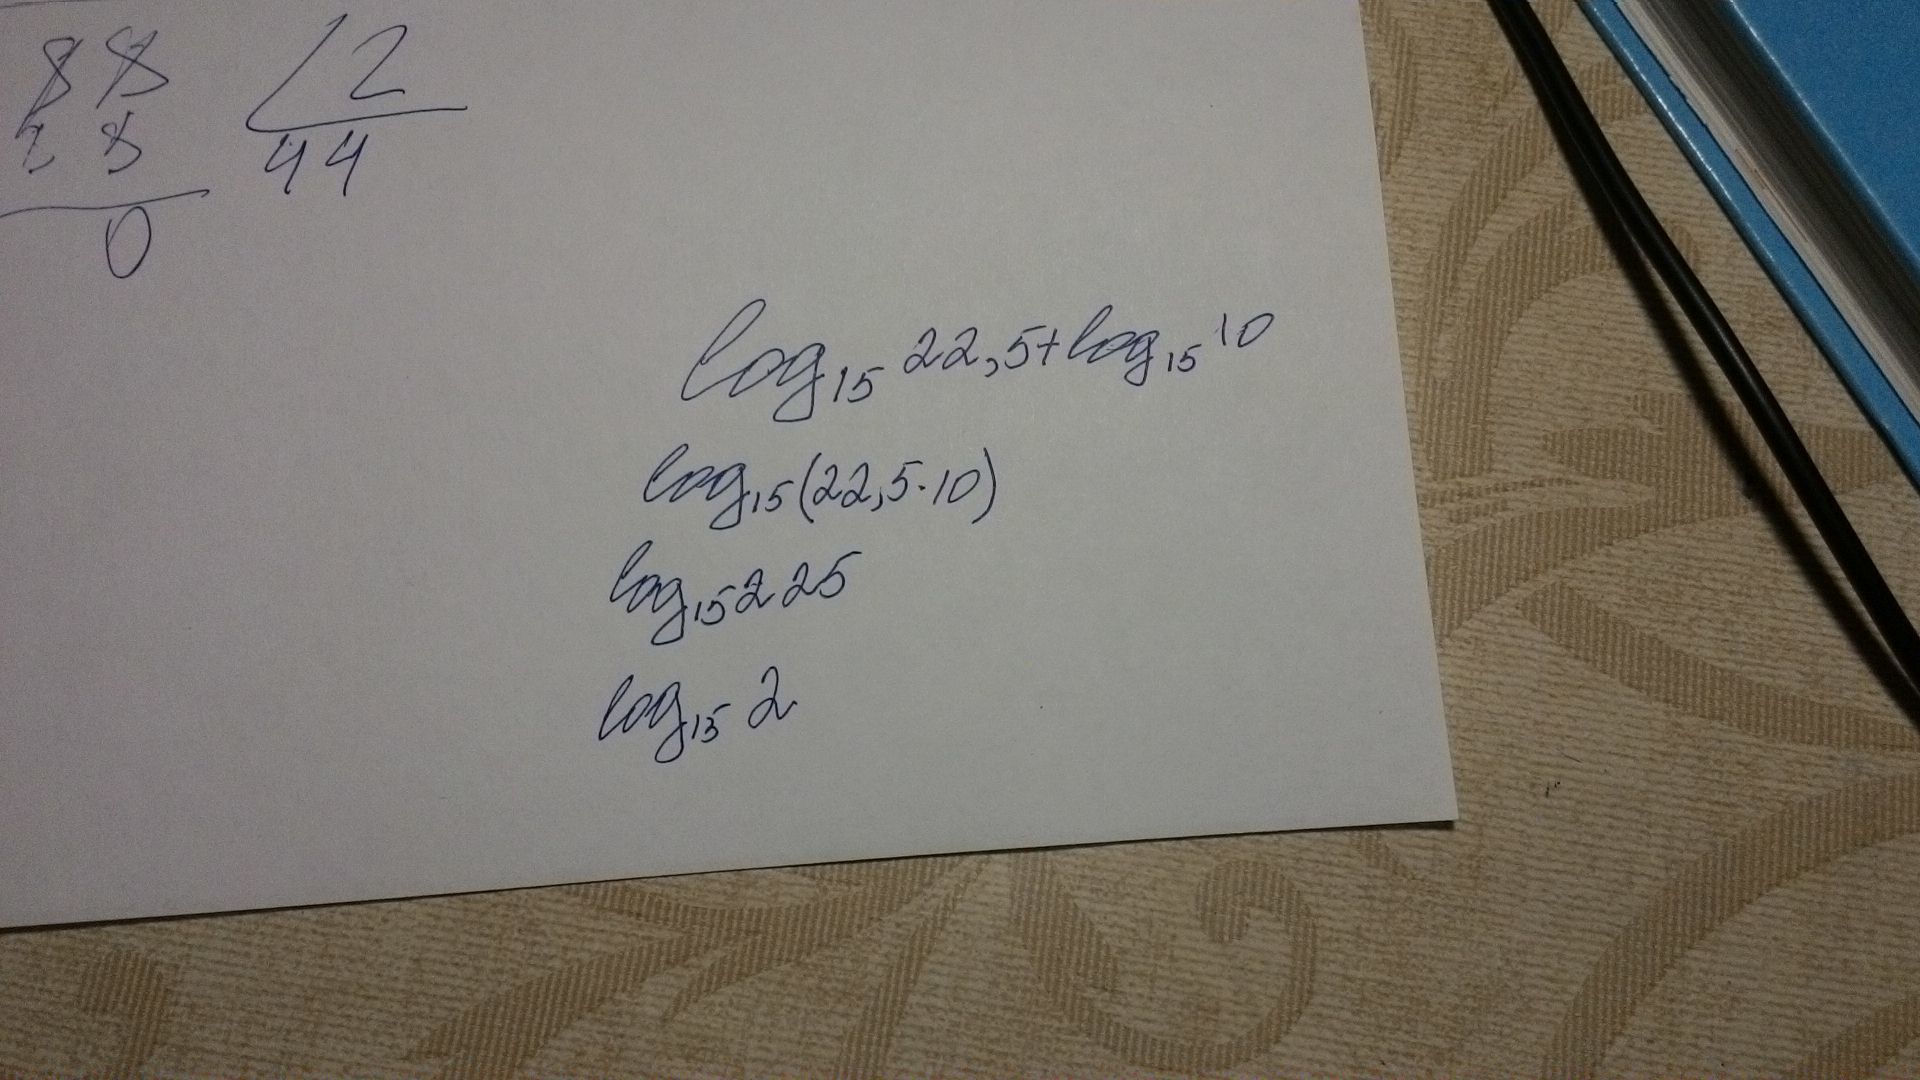 88 2
88 44
0
log₁₅ 22,5+log₁₅ 10
log₁₅(22,5·10)
log₁₅225
log₁₅ 2